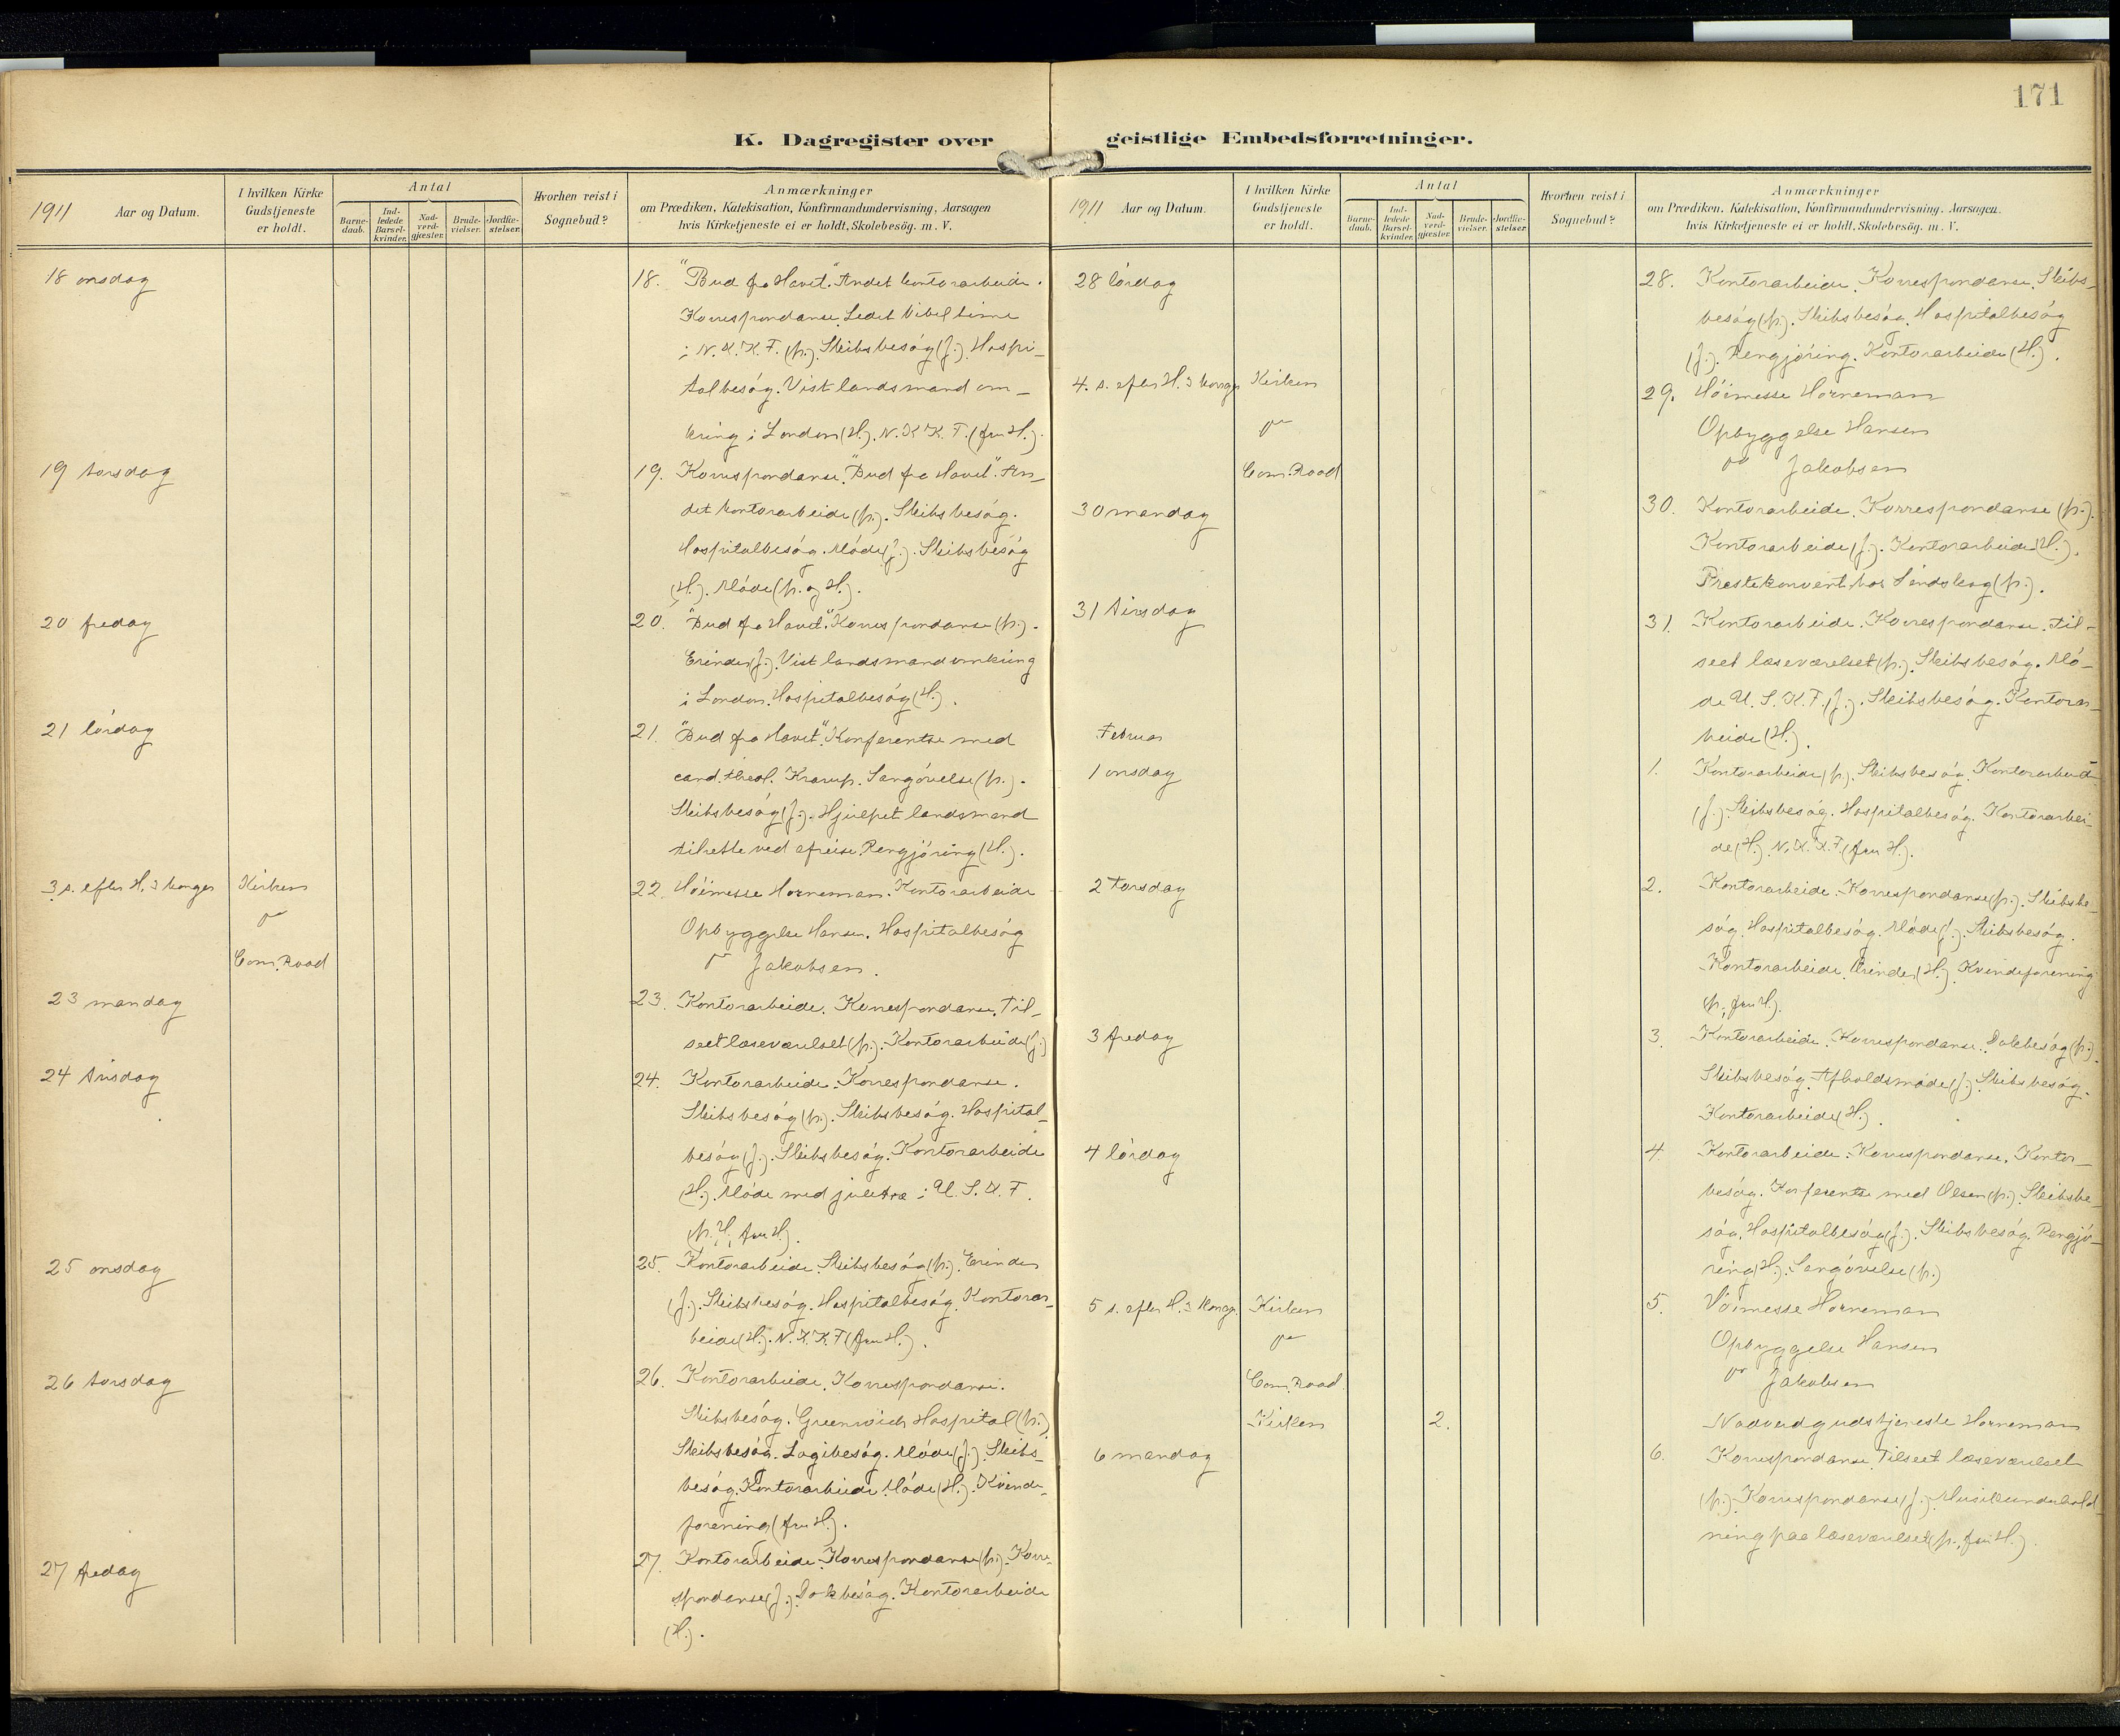 171
K. Dagregister over geistlige Embedsforretninger.
1911 Aar og Datum.
I hvilken Kirke Gudstjeneste er holdt.
Antal
Barne-daab.
Ind-ledede Barsel-kvinder.
Nad-verd-gjæster.
Brude-vielser.
Jordfæ-stelser.
Hvorhen reist i Sognebud?
Anmærkninger
om Prædiken, Katekisation, Konfirmandundervisning, Aarsagen
hvis Kirketjeneste ei er holdt, Skolebesög. m. V.
18 onsdag
18. "Bud fra Havet". Andet kontorarbeide.
Korrespondanse. Ledet bibeltime
i N. K. K. F. (p.). Skibsbesøg (J.). Hospi-
talbesøg. Vist landsmand om-
kring i London (H.). N. K. K. F. (fru H.).
19 torsdag
19. Korrespondanse. "Bud fra Havet". An-
det kontorarbeide (p.). Skibsbesøg.
Hospitalbesøg. Møde (J.). Skibsbesøg
(H.). Møde (p. og H.).
20 fredag
20. "Bud fra Havet". Korrespondanse (p.).
Erinder (J.). Vist landsmand omkring
i London. Hospitalbesøg (H.).
21 lørdag
21. "Bud fra Havet". Konferentse med
cand. theol. Krarup. Sangøvelse (p.).
Skibsbesøg (J.). Hjulpet landsmand
tilrette ved afreise. Rengjøring (H.).
3 s. efter H. 3 konger Kirken
22. Høimesse Horneman. Kontorarbeide
Opbyggelse Hansen. Hospitalbesøg
Com. Road
Jakobsen.
23 mandag
23. Kontorarbeide. Korrespondanse. Til-
seet læseværelset (p.). Kontorarbeide (J.)
24 tirsdag
24. Kontorarbeide. Korrespondanse.
Skibsbesøg (p.). Skibsbesøg. Hospital-
besøg (J.). Skibsbesøg. Kontorarbeide
(H.). Møde med juletræ i U. S. K. F.
(p. H., fru H.).
25 onsdag
25. Kontorarbeide. Skibsbesøg (p.). Erinder
(J.). Skibsbesøg. Hospitalbesøg. Kontorar-
beide (H.). N. K. K. F (fru H.).
26 torsdag
26. Kontorarbeide. Korrespondanse.
Skibsbesøg. Greenwich Hospital (p.)
Skibsbesøg. Logibesøg. Møde (J.). Skibs-
besøg. Kontorarbeide. Møde (H.). Kvinde-
forening (fru H.).
27 fredag
27. Kontorarbeide. Korrespondanse (p.). Korre-
spondanse (J.). Dokbesøg. Kontorarbeide
(H.).
1911 Aar og Datum.
I hvilken Kirke Gudstjeneste er holdt.
Antal
Barne-daab.
Ind-ledede Barsel-kvinder.
Nad-verd-gjæster.
Brude-vielser.
Jordfæ-stelser.
Hvorhen reist i Sognebud?
Anmærkninger
om Prædiken, Katekisation, Konfirmandundervisning, Aarsagen
hvis Kirketjeneste ei er holdt, Skolebesög. m. V.
28 lørdag
28. Kontorarbeide. Korrespondanse. Skibs-
besøg (p.). Skibsbesøg. Hospitalbesøg
(J.). Rengjøring. Kontorarbeide (H.).
4. s. efter H. 3 konger Kirken
29. Høimesse Horneman
Opbyggelse Hansen
Com. Road
Jakobsen
30 mandag
30. Kontorarbeide. Korrespondanse (p.).
Kontorarbeide (J.). Kontorarbeide (H.).
Prestekonvent hos Søndskog (p.).
31 tirsdag
31. Kontorarbeide. Korrespondanse. Til-
seet læseværelset (p.). Skibsbesøg. Mø-
de U. S. K. F. (J.). Skibsbesøg. Kontorar-
beide (H.).
Februar
1 onsdag
1. Kontorarbeide (p.). Skibsbesøg. Kontorarbeide
(J.). Skibsbesøg. Hospitalbesøg. Kontorarbei-
de (H.). N. K. K. F (fru H.).
2 torsdag
2. Kontorarbeide. Korrespondanse (p.). Skibsbe-
søg. Hospitalbesøg. Møde (J.). Skibsbesøg.
Kontorarbeide. Erinder (H.). Kvindeforening
(p., fru H.).
3 fredag
3. Kontorarbeide. Korrespondanse. Dokbesøg (p.).
Skibsbesøg. Afholdsmøde (J.). Skibsbesøg.
Kontorarbeide (H.).
4 lørdag
4. Kontorarbeide. Korrespondanse. Kontor-
besøg. Konferentse med Olsen (p.). Skibsbe-
søg. Hospitalbesøg (J.). Skibsbesøg. Rengjø-
ring (H.). Sangøvelse (p.)
5 s. efter H. 3 Kong. Kirken
5. Høimesse Horneman
Opbyggelse Hansen
Com. Road.
Jakobsen
Kirken 2. Nadverdgudstjeneste Horneman
6 mandag
6. Korrespondanse. Tilseet læseværelset
(p.). Korrespondanse (J.). Musikunderhold-
ning paa læseværelset (p., fru H.).